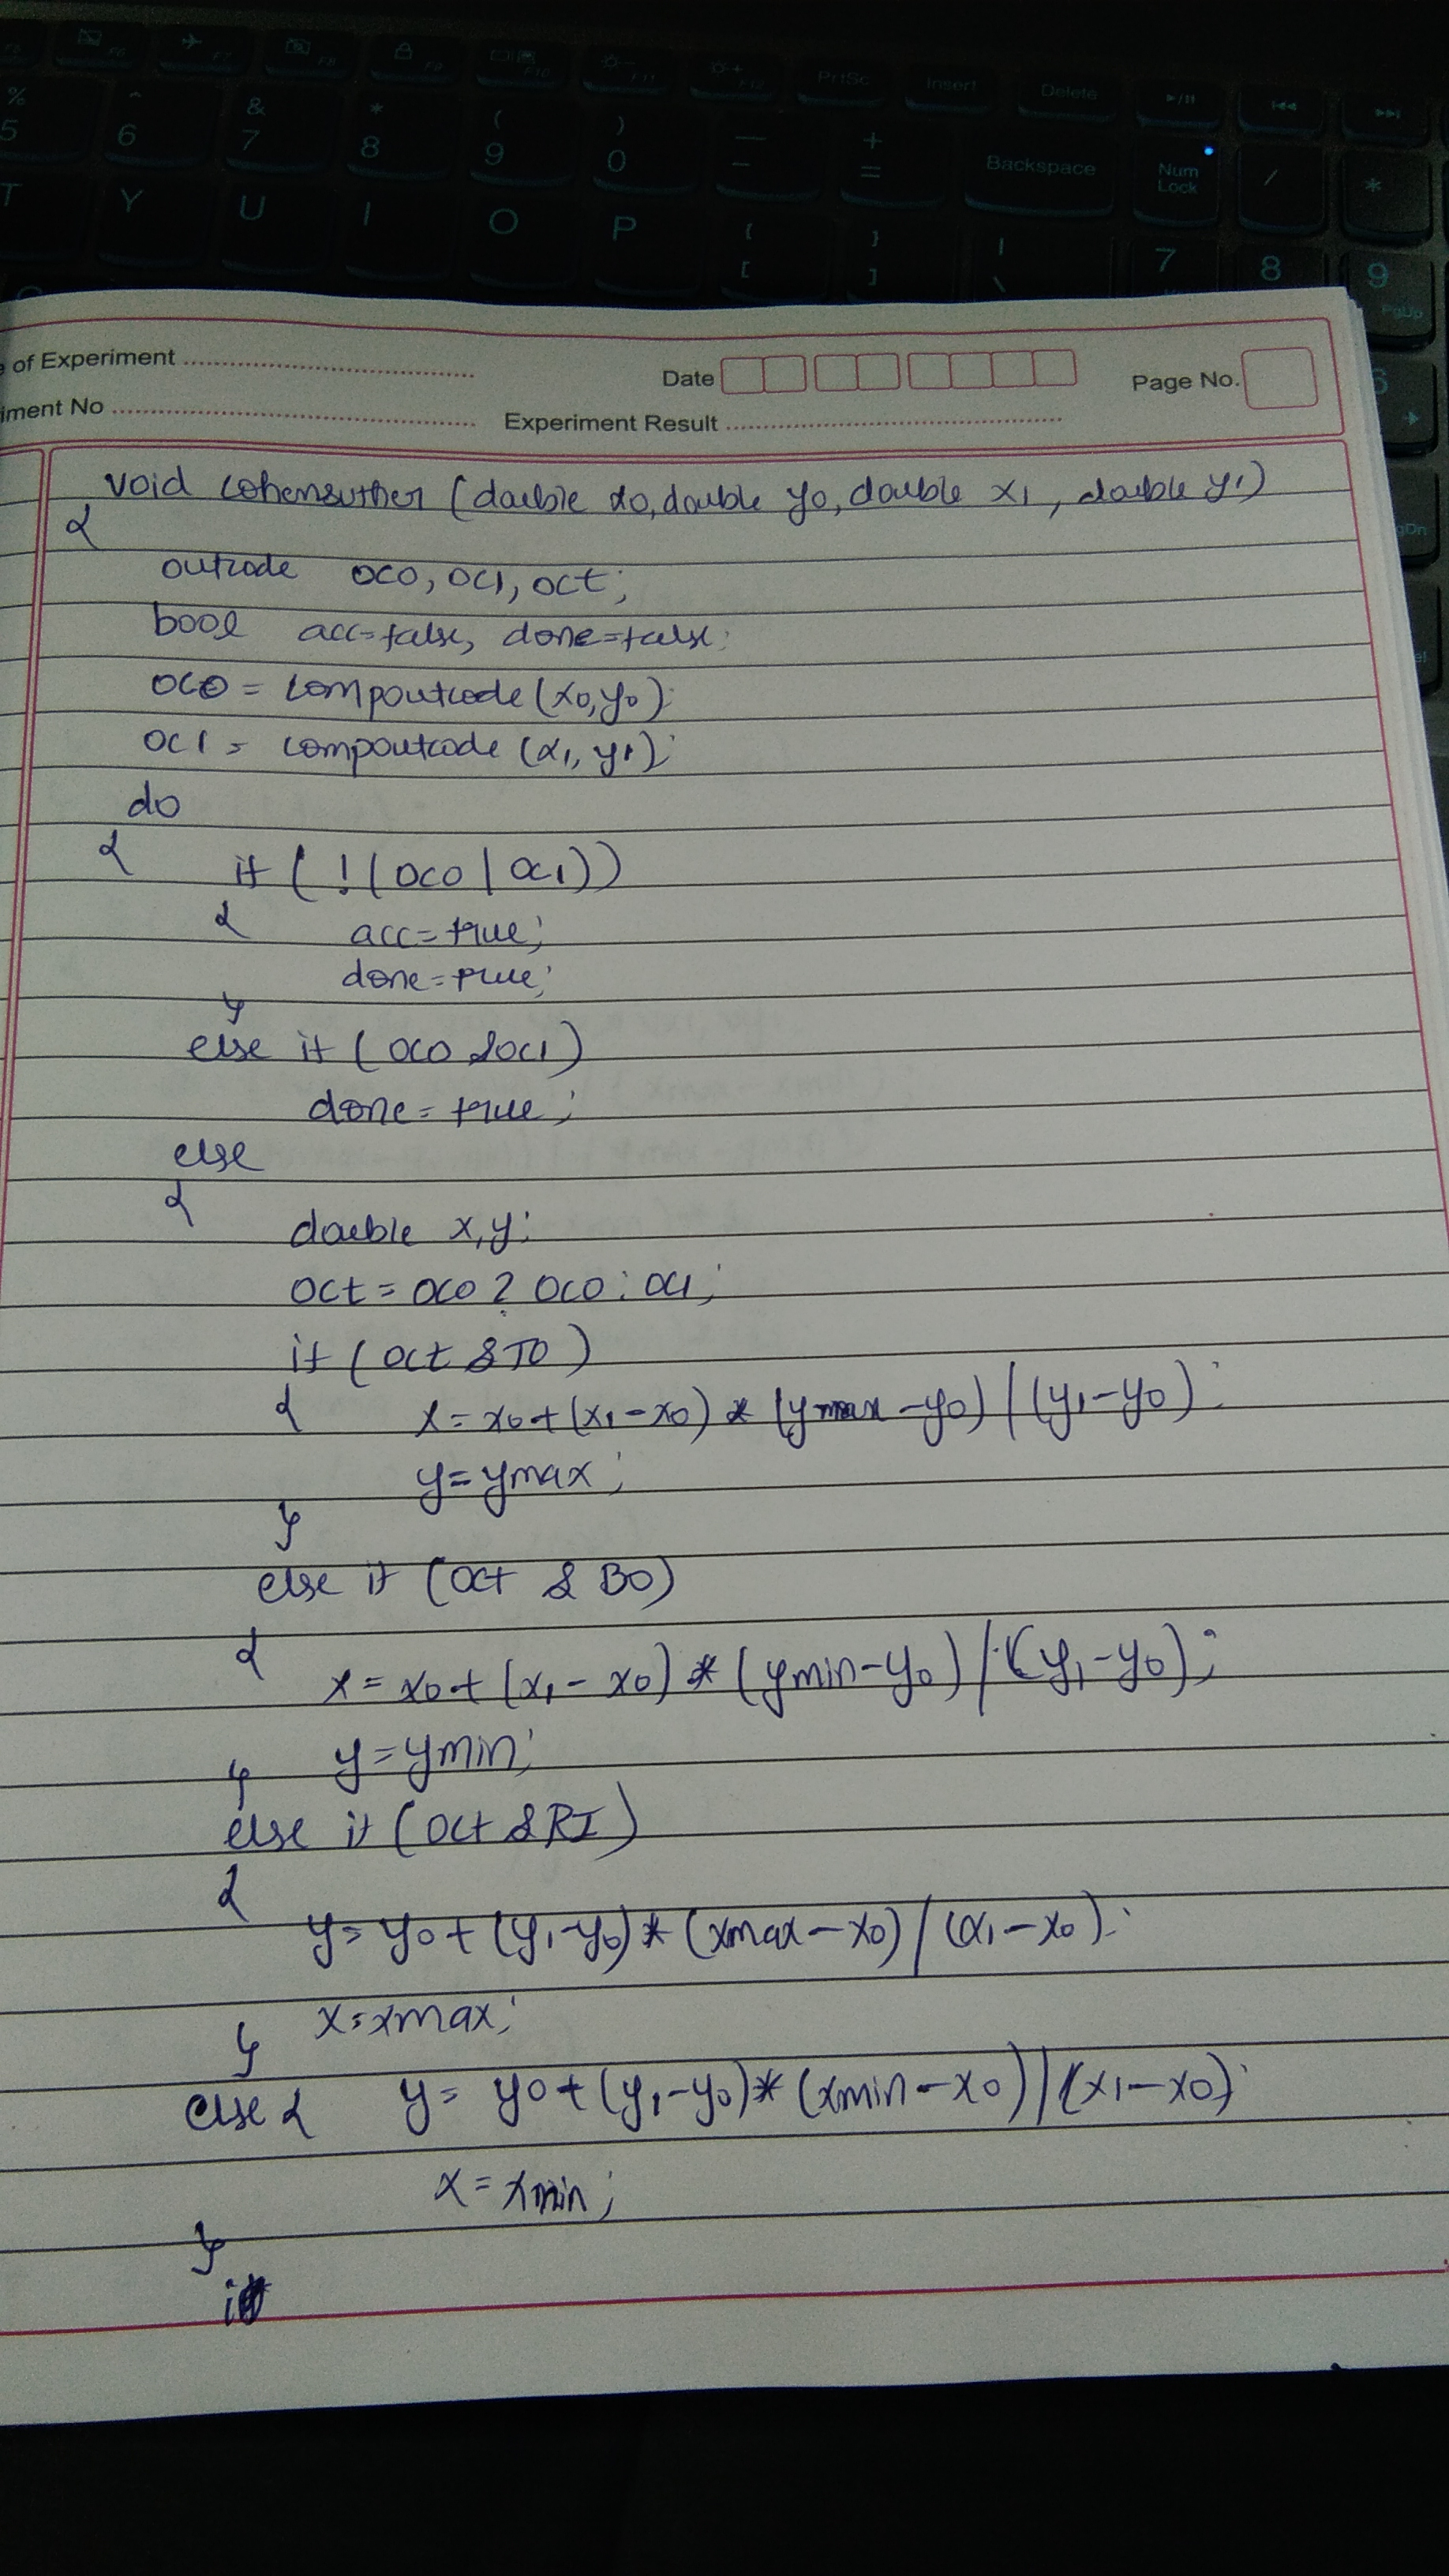 % ^ & * ( ) — +
5 6 7 8 9 0 - = Backspace Num Lock / *
F6 F7 F8 F9 F10 F11 F12 PrtSc Insert Delete
T Y U I O P { [ } ] | \ 7 8 9 PgUp
of Experiment
Date
Page No.
iment No
Experiment Result
void cohensuther (double x0, double y0, double x1, double y1)
{
outcode oc0, oc1, oct;
bool acc=false, done=false;
oc0 = compoutcode (x0,y0);
oc1 = compoutcode (x1, y1);
do
{ if ( ! (oc0 | oc1))
{ acc=true;
done=true;
}
else if (oc0 & oc1)
done=true;
else
{
double x,y;
oct = oc0 ? oc0 : oc1;
if (oct & TO)
{ x = x0+(x1-x0) * (ymax-y0) / (y1-y0);
y=ymax;
}
else if (oct & BO)
{
x = x0+(x1-x0) * (ymin-y0) / (y1-y0);
} y=ymin;
else if (oct & RI)
{
y= y0+(y1-y0)*(xmax-x0) / (x1-x0);
} x=xmax;
else { y= y0+(y1-y0)*(xmin-x0) / (x1-x0);
x=xmin;
}